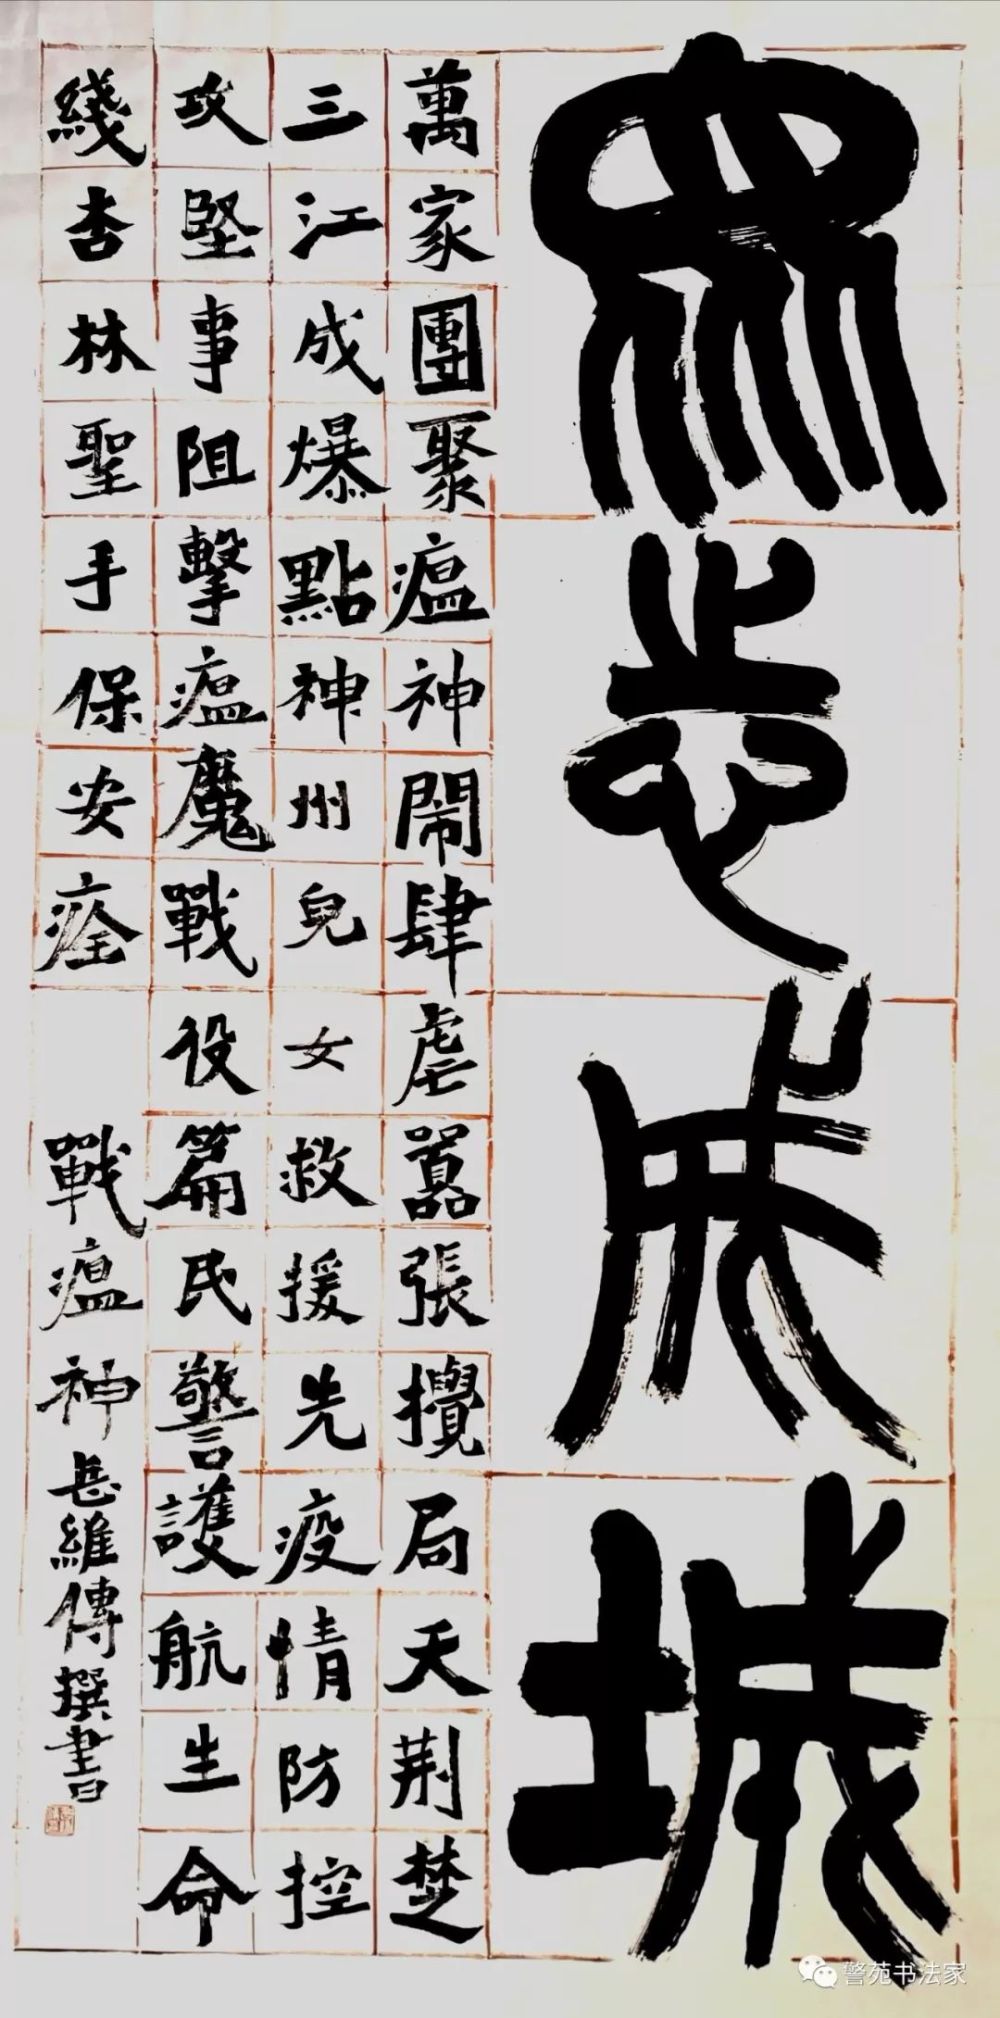 眾志成城
萬家團聚瘟神鬧肆虐囂張攪局天荆楚
三江成爆點神州兒女救援先疫情防控
攻堅事阻擊瘟魔戰役篇民警護航生命
綫杏林聖手保安痊
戰瘟神 岳維傳撰書
警苑书法家